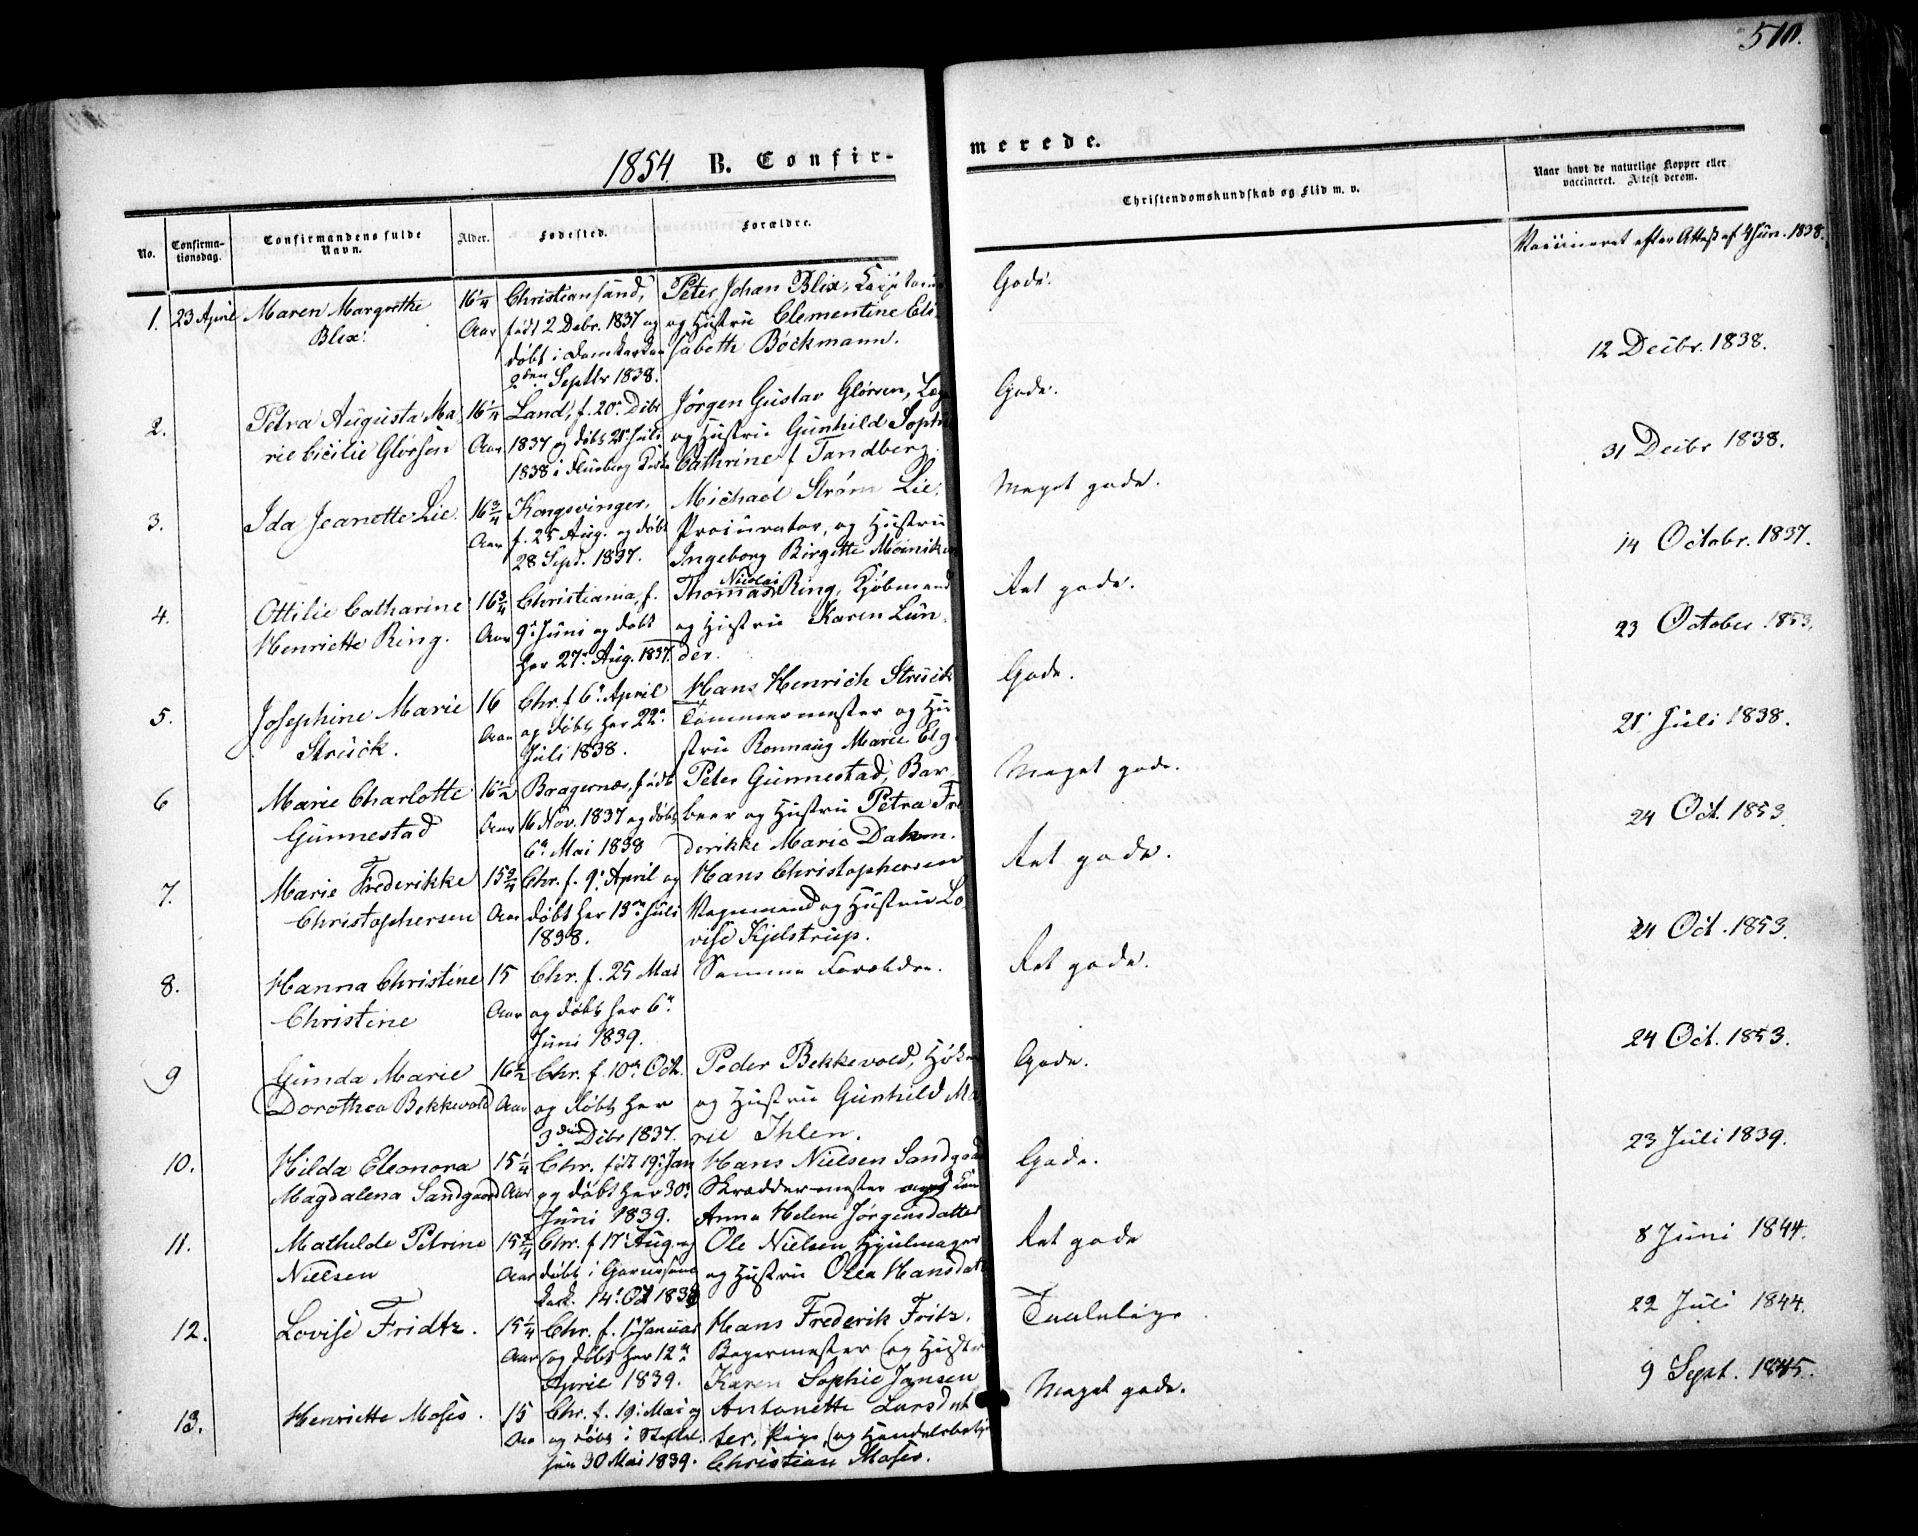 510.
1854. B. Confir-
merede.
No.
Confirma-
tionsdag.
Confirmandens fulde
Navn.
Alder.
Fødested.
Forældre.
Christendomskundskab og Flid m. v.
Naar havt de naturlige Kopper eller
vaccineret. Attest derom.
1. 23 April Maren Margrethe
Blix.
16 1/4
Aar
Christiansand,
født 2 Debr. 1837 og
døbt i Domkirken
2den Septbr 1838.
Peter Johan Blix,
og Hustru Clementine Eli-
sabeth Bøckmann.
Gode.
Vaccineret efter Attest af 4 Jun. 1838.
2.
Petra Augusta Ma-
rie Cicilie Glørsen
16 1/4
Aar
Land, f. 20de Dcbr
1837 og døbt 21 Juli
1838 i
Jørgen Gustav Glørsen,
og Hustru Gunhild Sophie
Cathrine f Tandberg.
Gode.
12 Decbr. 1838.
3.
Ida Jeanette Lie.
16 3/4
Aar
Kongsvinger,
f. 25 Aug. og døbt
28 Sept. 1837.
Michael Strøm Lie.
Procurator, og Hustru
Ingeborg Birgitte
Meget gode.
31 Decbr 1838.
4.
Ottilie Catharine
Henriette Ring.
16 3/4
Aar
Christiania, f.
9 Juni og døbt
her 27 Aug. 1837.
Nicolai
Thomas Ring, Kjøbmand
og Hustru Karen Lun-
der.
Ret gode.
14 Octobr. 1837.
5.
Josephine Marie
Struck.
16
Aar
Chr. f. 6 April
og døbt her 22
Juli 1838.
Hans Henrich Struck
Tømmermester og Hu-
stru Ronnaug Marie Elg
Gode.
23 October 1853.
6
Marie Charlotte
Gunnestad
16 1/2
Aar
Bragernæs, født
16 Nov. 1837 og døbt
6 Mai 1838
Peter Gunnestad, Bar-
beer og Hustru Petra Fre-
derikke Marie Dahm.
Meget gode.
21 Juli 1838.
7.
Marie Frederikke
Christophersen
15 3/4
Aar
Chr. f. 9 April og
døbt her 13 Juli
1838.
Hans Christophersen
Vognmand og Hustru Lo-
vise Kjelstrup.
Ret gode.
24 Oct. 1853.
8.
Hanna Christine
Christine
15
Aar
Chr. f. 25 Mai
og døbt her 6
Juni 1839.
Samme Forældre.
Ret gode.
24 Oct. 1853.
9
Gunda Marie
Dorothea Bekkevold
16 1/2
Aar
Chr. f. 10 Oct.
og døbt her
3die Dcbr 1837.
Peder Bekkevold,
og Hustru Gunhild Ma-
rie Ihlen.
Gode.
24 Oct. 1853.
10.
Hilda Eleonora
Magdalena Sandgaard
15 1/4
Aar
Chr. født 19 Jan
og døbt her 30
Juni 1839.
Hans Nielsen Sandgaard
Skræddermester
Anna Helene Jørgensdatter
Gode.
23 Juli 1839.
11.
Mathilde Petrine
Nielsen
15 3/4
Aar
Chr. f 17 Aug. og
døbt i Garnisons
kirk. 14 Oct 1838
Ole Nielsen Hjulmager
og Hustru Olea Hansdatt
Ret gode
8 Juni 1844.
12.
Lovise Fridtz.
15 1/4
Aar
Chr. f. 1 Januar
og døbt her 12
April 1839.
Hans Frederik Fritz.
Bagermester og Hustru
Karen Sophie Jansen
Taalelige
22 Juli 1844.
13.
Henriette Moses.
15
Aar
Chr. f. 19 Mai og
og døbt i
30 Mai 1839.
Antonette Larsdat-
ter, Pige, og Handelsbetj
Christian Moses.
Meget gode.
9 Sept. 1845.